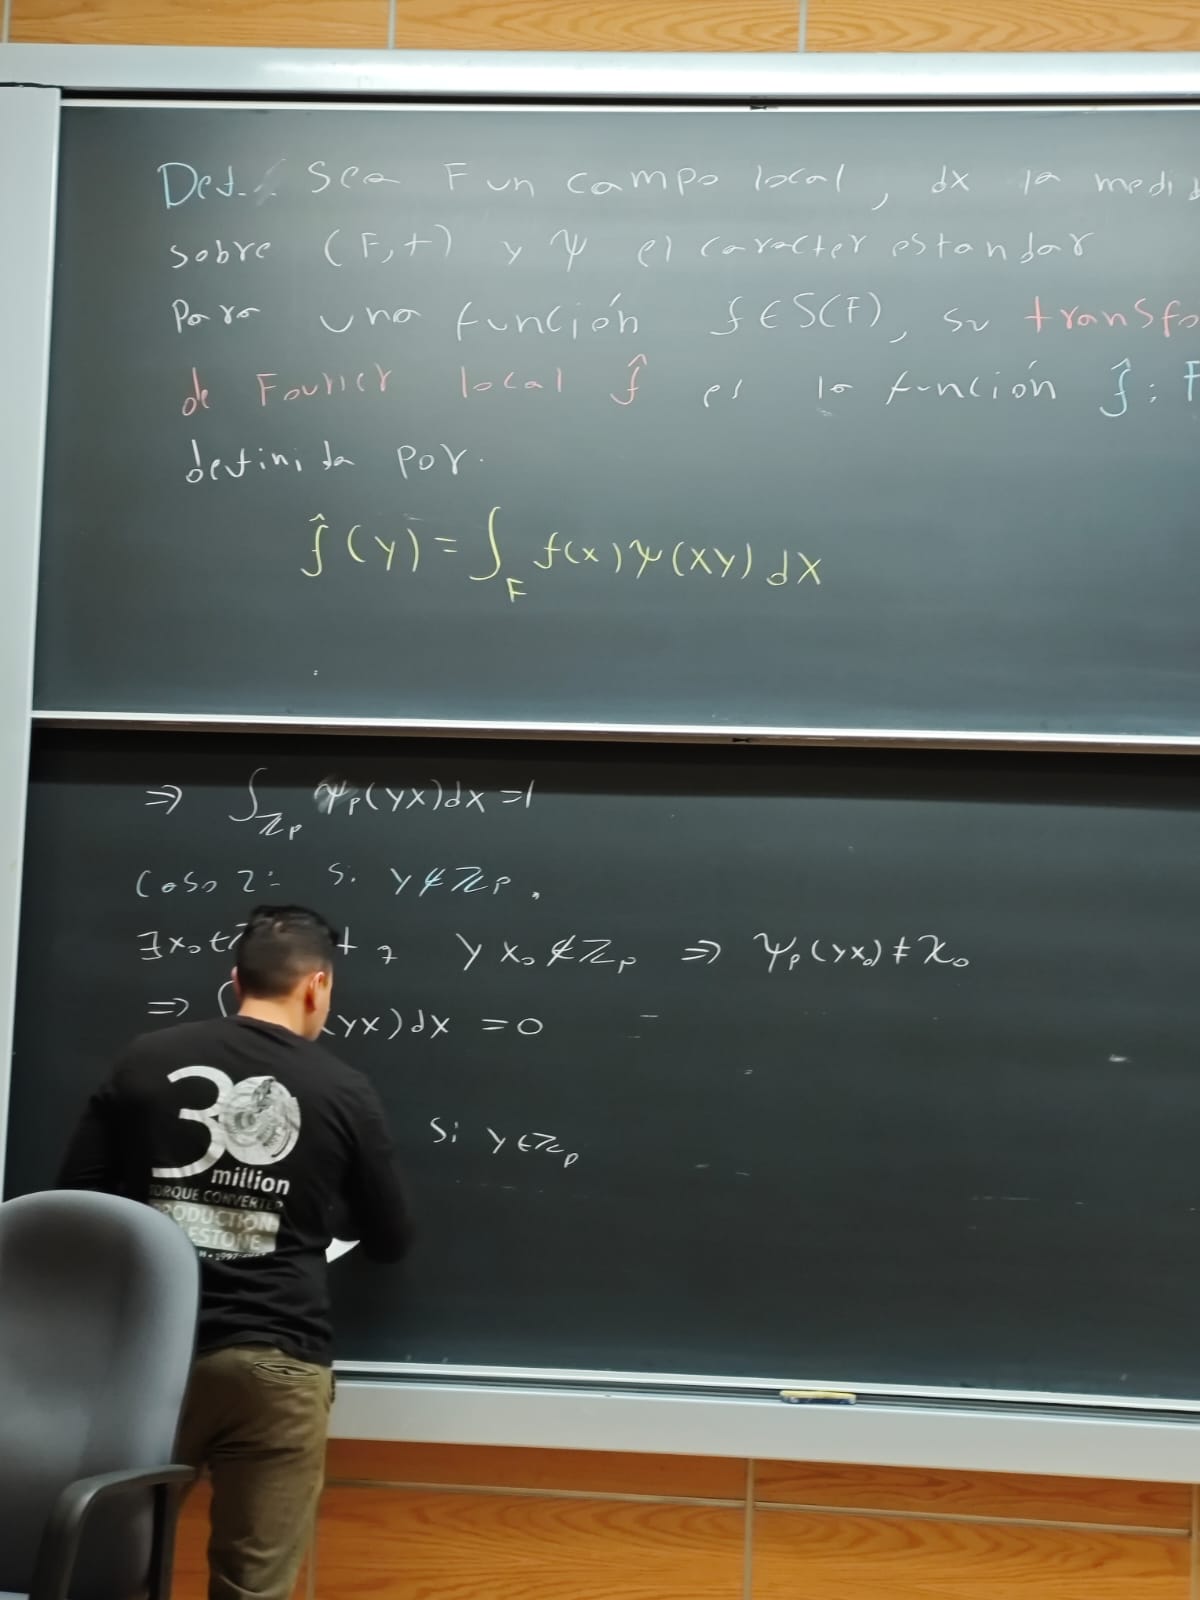 Def.: Sea F un campo local, dx la medi
sobre (F,+) y ψ el caracter estandar
Para una función f∈S(F), su transfo
de Fourier local f̂ es la función f̂: F
definida por.
f̂(y) = ∫_F f(x)ψ(xy)dx
⇒ ∫_ℤp ψp(yx)dx = 1
Caso 2: Si y∉ℤp,
∃x₀∈ yx₀∉ℤp ⇒ ψp(yx₀)≠χ₀
⇒ (yx)dx = 0
Si y∈ℤp
30
million
TORQUE CONVERTER
PRODUCTION